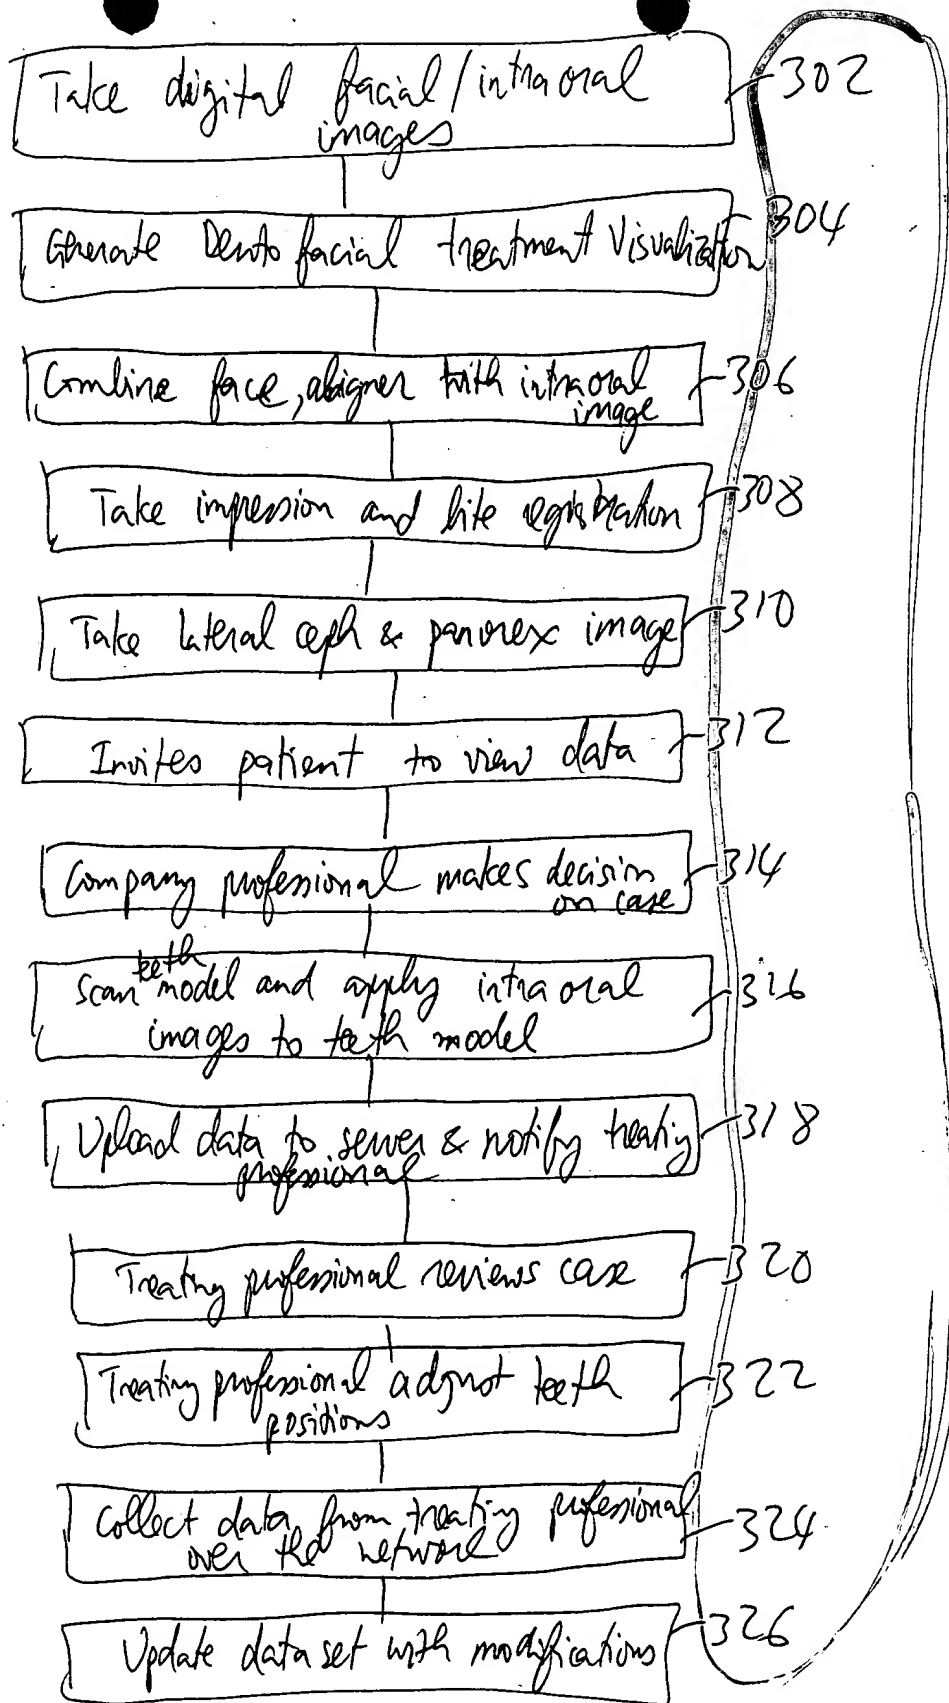 Take digital facial/intraoral 302
images
Generate Dentofacial treatment Visualization 304
Combine face, aligner with intraoral 306
image
Take impression and bite registration 308
Take lateral ceph & panorex image 310
Invites patient to view data 312
Company professional makes decision 314
on case
teeth
Scan model and apply intraoral 316
images to teeth model
Upload data to server & notify treating 318
professional
Treating professional reviews case 320
Treating professional adjust teeth 322
positions
Collect data from treating professional 324
over the network
Update data set with modifications 326